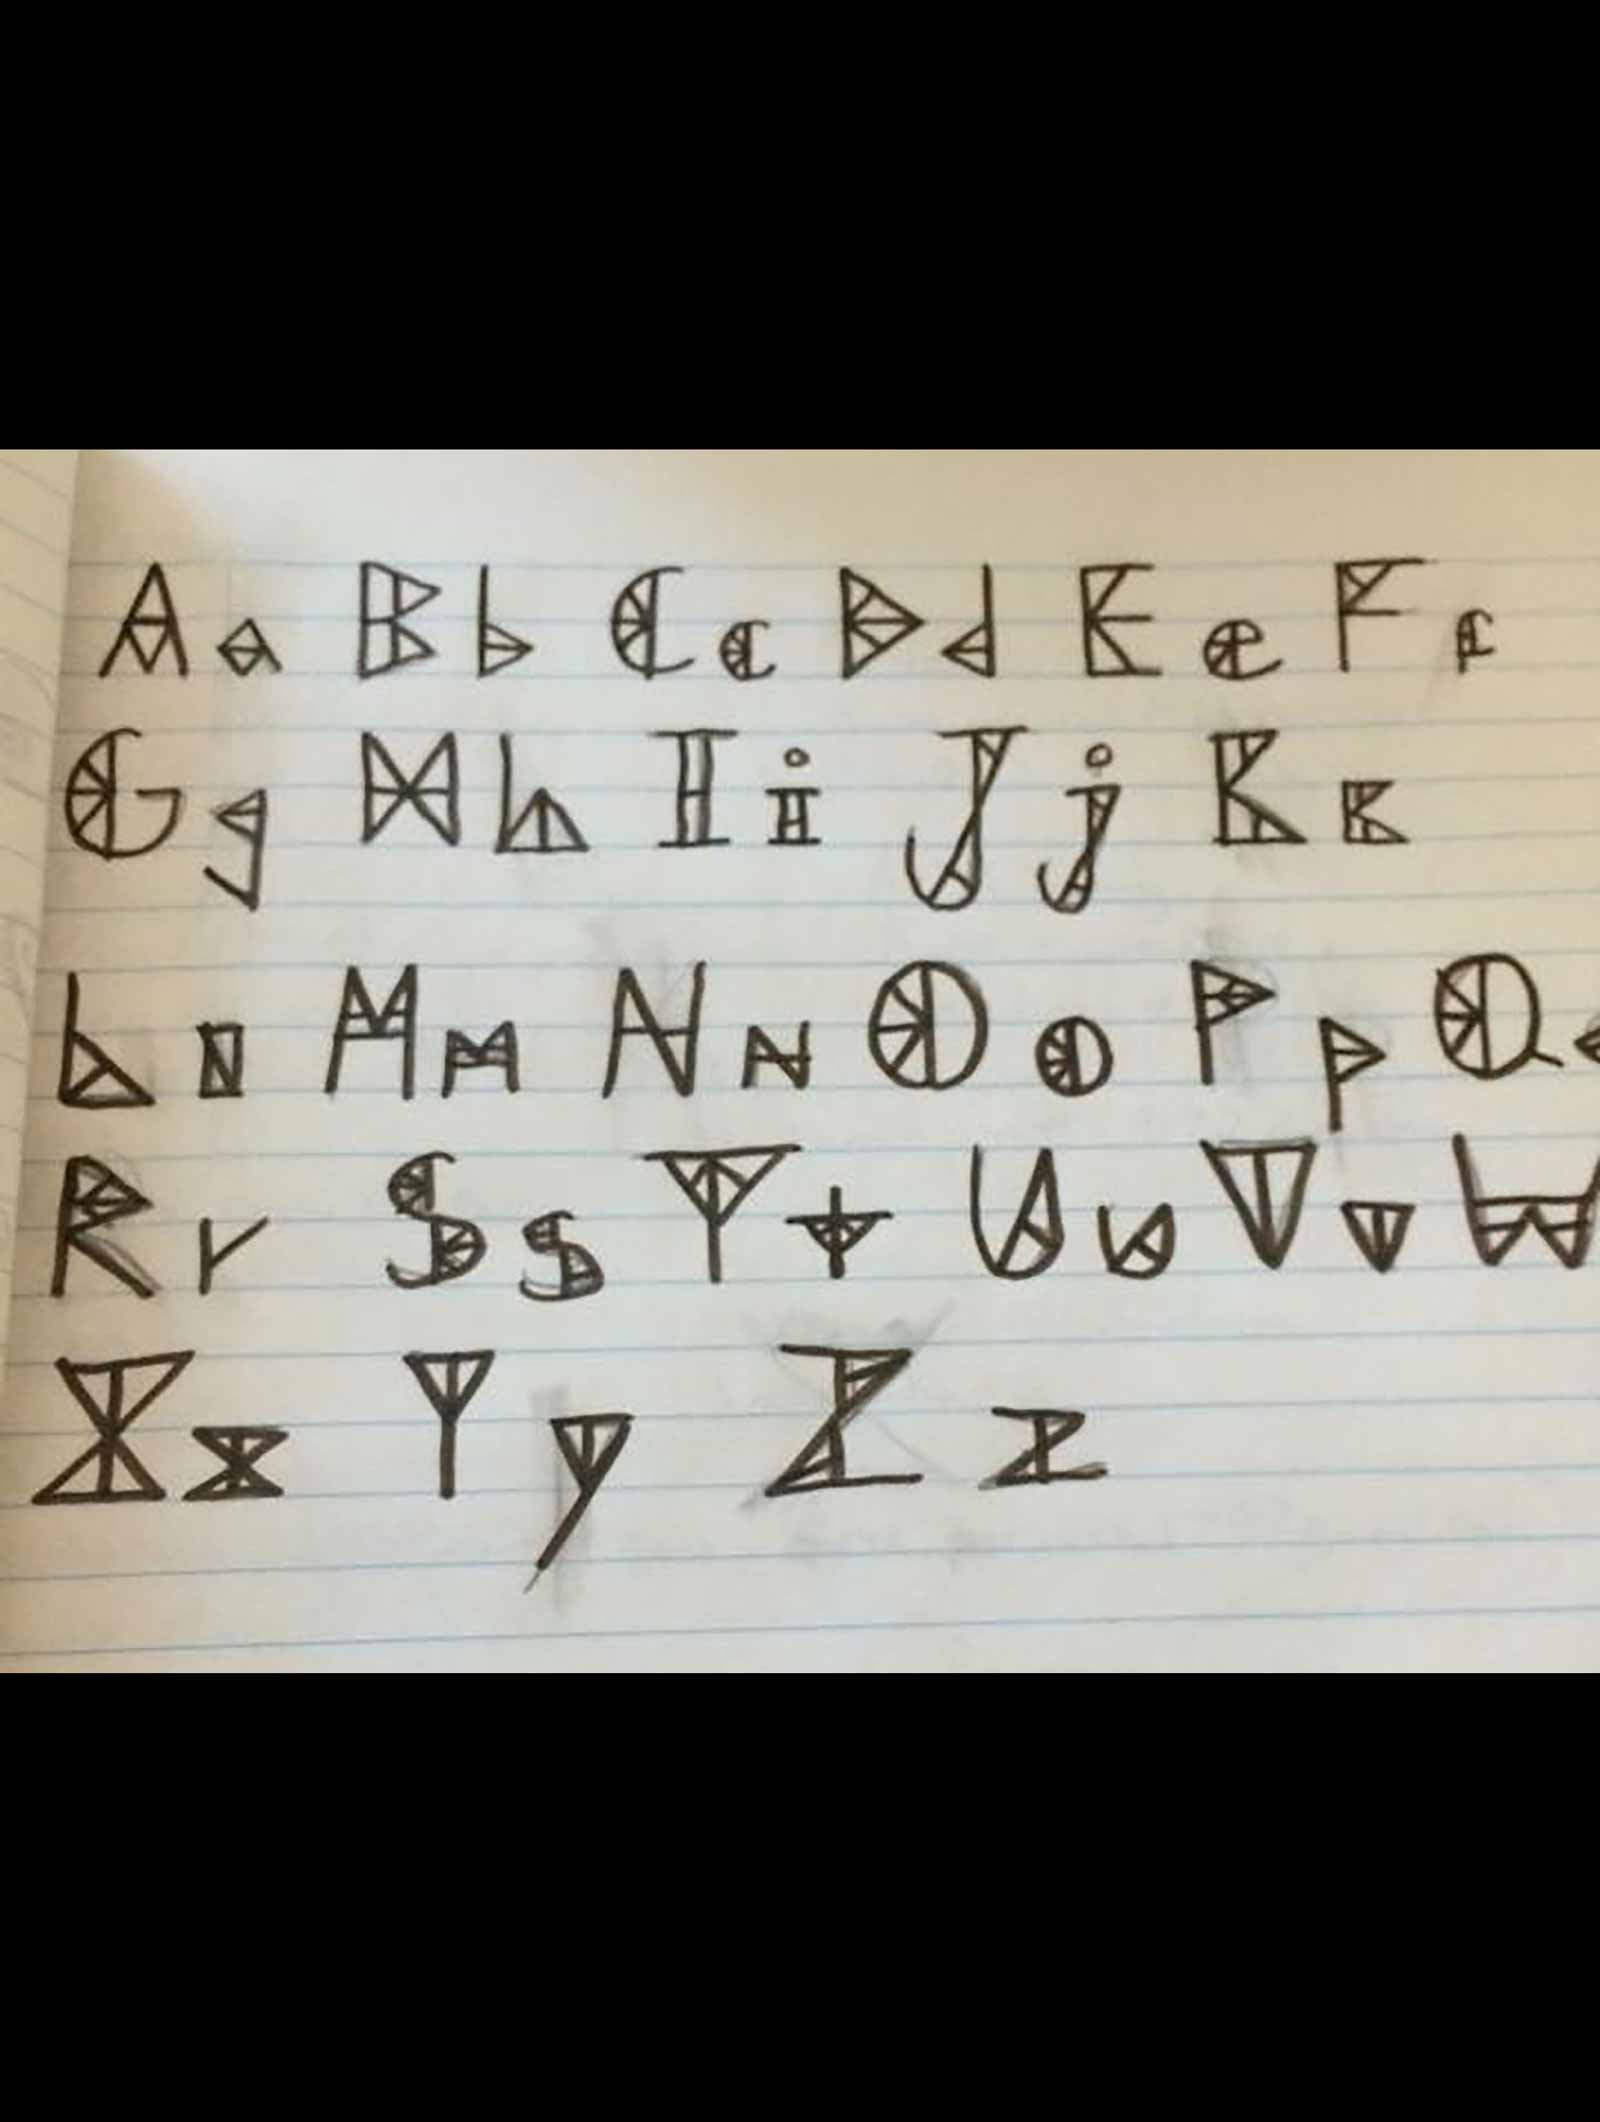 Aa Bb Cc Dd Ee Ff
Gg Hh Ii Jj Kk
Ll Mm Nn Oo Pp Q
Rr Ss Tt Uu Vv W
Xx Yy Zz